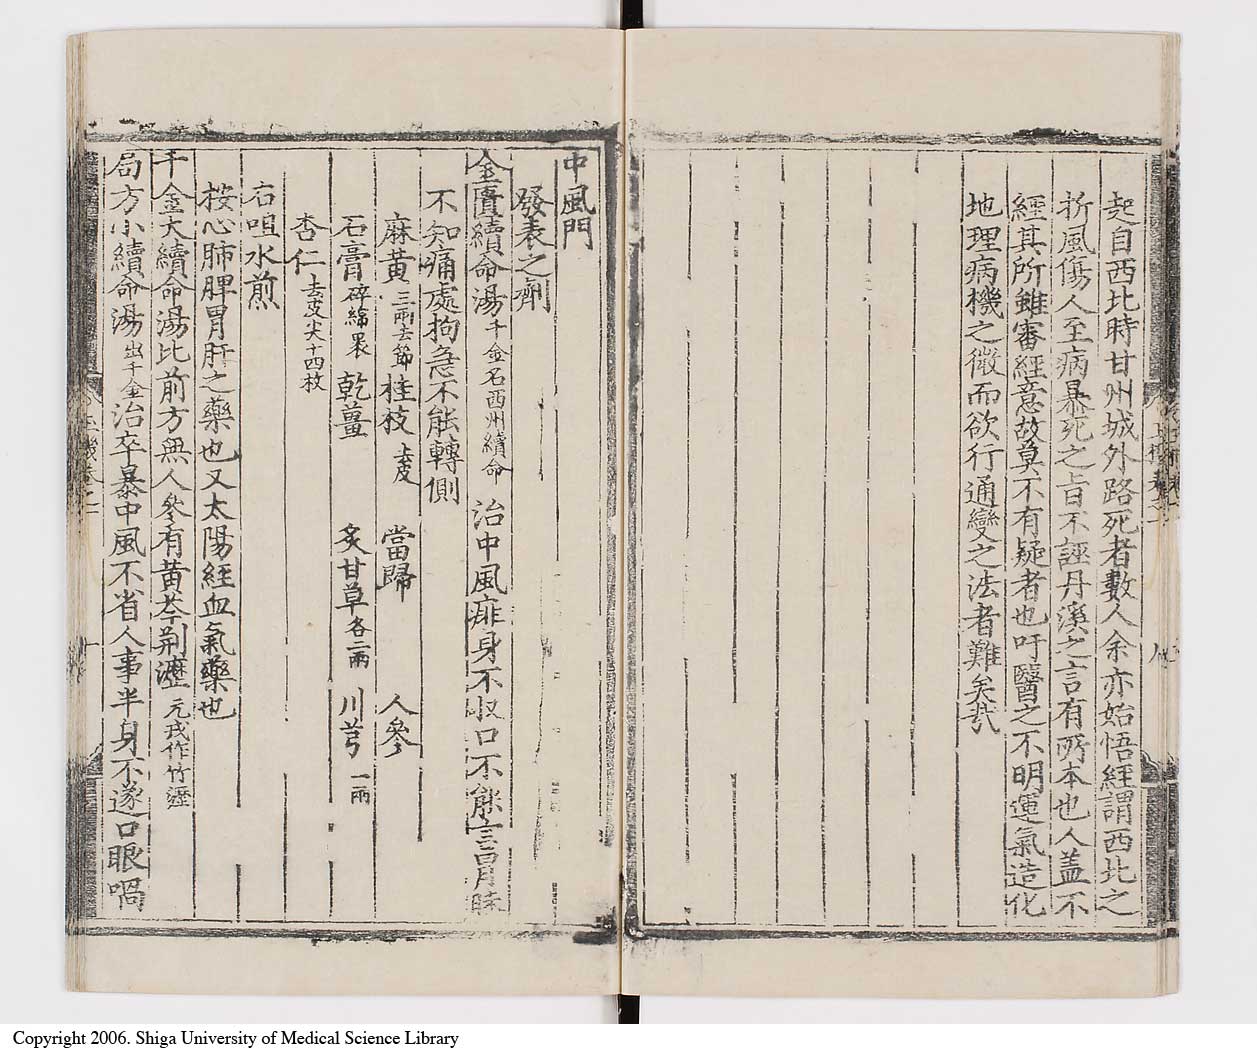 起自西北時甘州城外路死者數人余亦始悟經謂西北之
折風傷人至病暴死之旨不誣丹溪之言有所本也人蓋不
經其所雖審經意故莫不有疑者也吁醫之不明運氣造化
地理病機之微而欲行通變之法者難矣哉
中風門
發表之劑
金匱續命湯千金名西州續命 治中風痱身不收口不能言冒昧
不知痛處拘急不能轉側
麻黃三兩去節 桂枝去皮 當歸 人參
石膏碎綿裹 乾薑 炙甘草各二兩 川芎一兩
杏仁去皮尖十四枚
右咀水煎
桉心肺脾胃肝之藥也又太陽經血氣藥也
千金大續命湯比前方無人參有黃芩荆瀝元戎作竹瀝
局方小續命湯出千金治卒暴中風不省人事半身不遂口眼喎
Copyright 2006. Shiga University of Medical Science Library